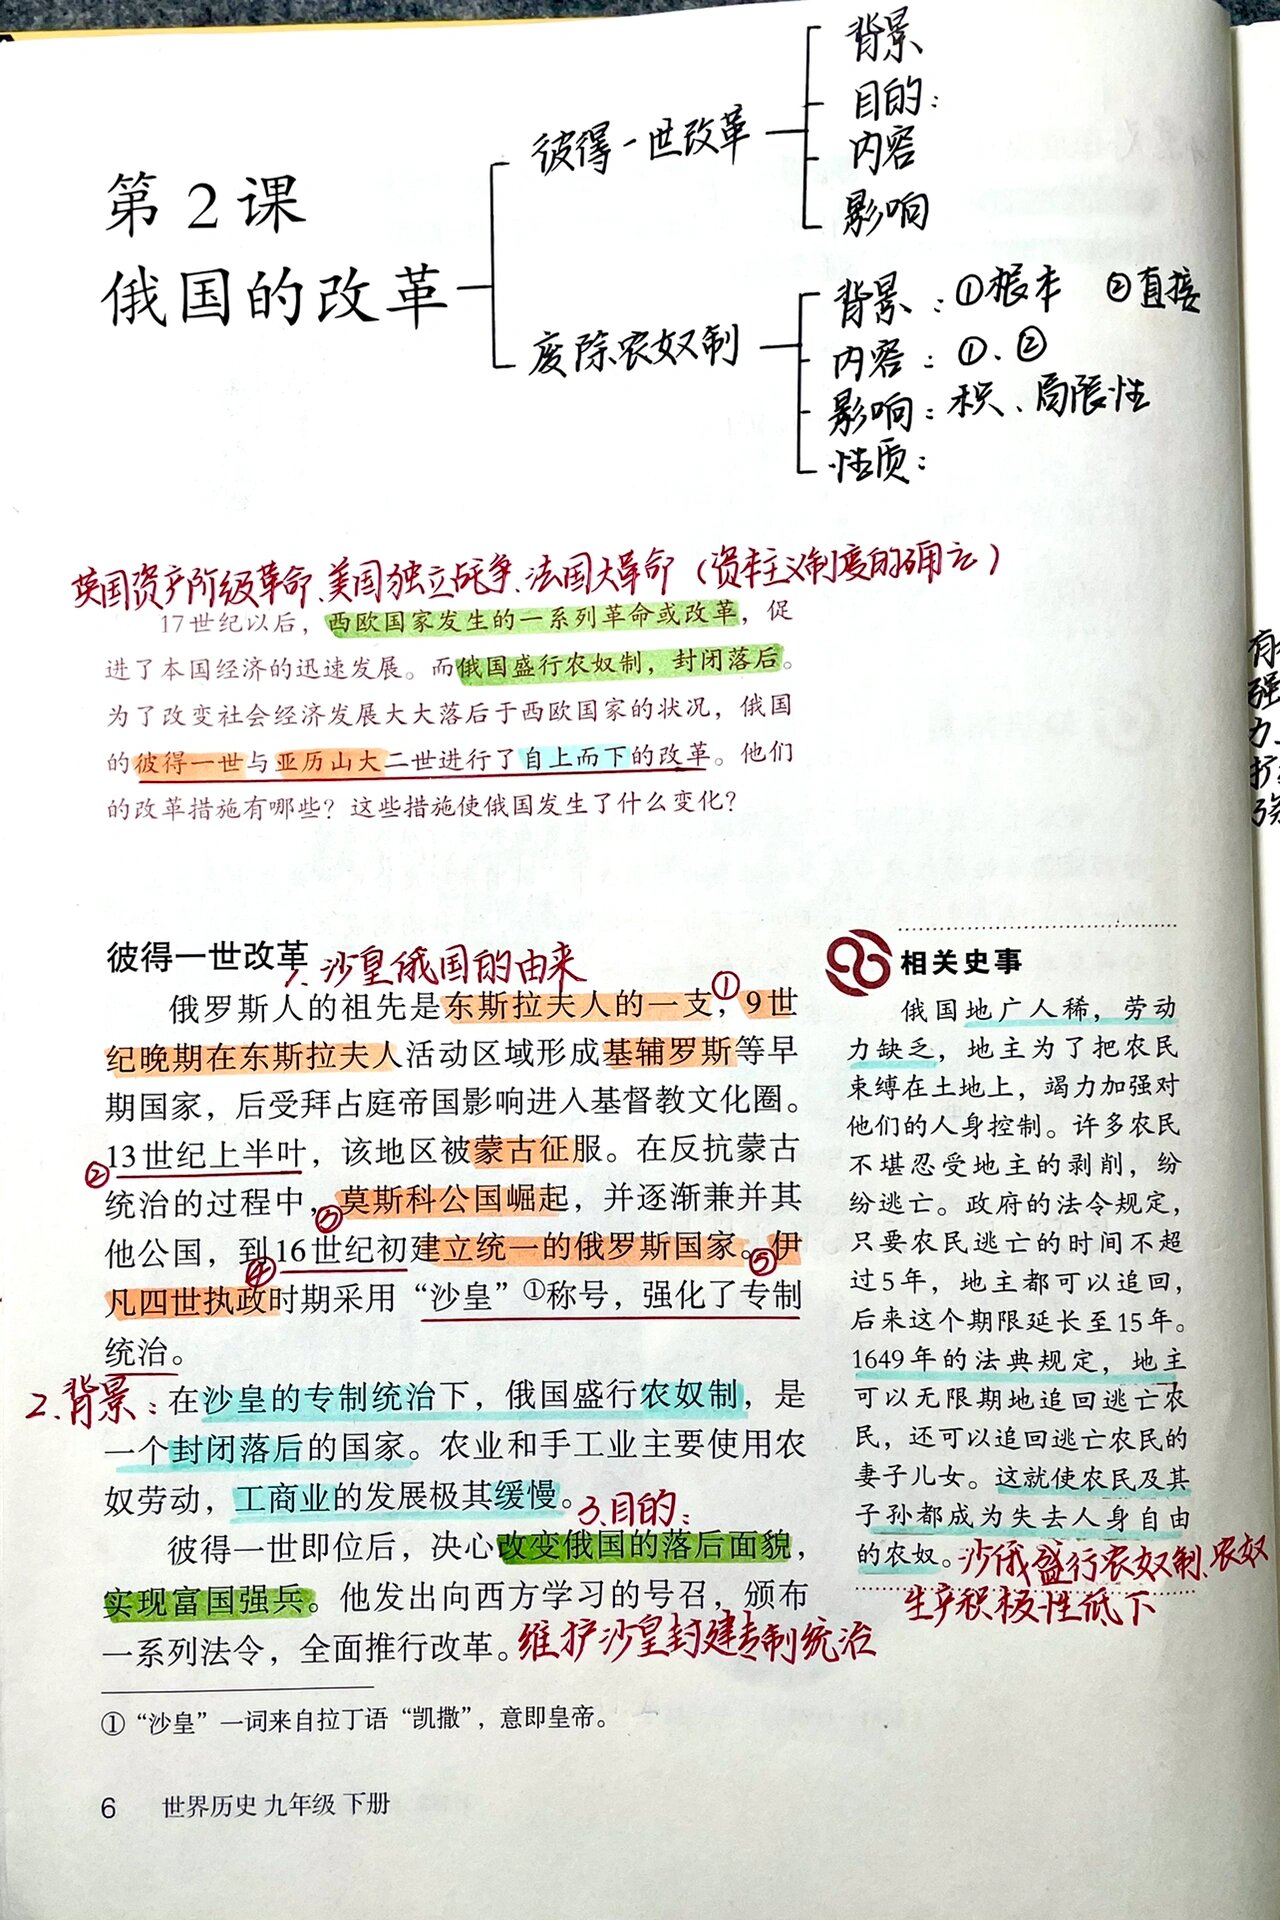 背景
目的：
彼得一世改革
内容
影响
第2课
俄国的改革
背景：①根本 ②直接
废除农奴制
内容：①、②
影响：积、局限性
性质：
英国资产阶级革命、美国独立战争、法国大革命（资本主义制度的确立）
17世纪以后，西欧国家发生的一系列革命或改革，促
进了本国经济的迅速发展。而俄国盛行农奴制，封闭落后。
为了改变社会经济发展大大落后于西欧国家的状况，俄国
的彼得一世与亚历山大二世进行了自上而下的改革。他们
的改革措施有哪些？这些措施使俄国发生了什么变化？
彼得一世改革
1、沙皇俄国的由来
俄罗斯人的祖先是东斯拉夫人的一支，①9世
纪晚期在东斯拉夫人活动区域形成基辅罗斯等早
期国家，后受拜占庭帝国影响进入基督教文化圈。
②13世纪上半叶，该地区被蒙古征服。在反抗蒙古
统治的过程中，③莫斯科公国崛起，并逐渐兼并其
他公国，到④16世纪初建立统一的俄罗斯国家。⑤伊
凡四世执政时期采用“沙皇”①称号，强化了专制
统治。
2、背景：在沙皇的专制统治下，俄国盛行农奴制，是
一个封闭落后的国家。农业和手工业主要使用农
奴劳动，工商业的发展极其缓慢。
3、目的：
彼得一世即位后，决心改变俄国的落后面貌，
实现富国强兵。他发出向西方学习的号召，颁布
一系列法令，全面推行改革。维护沙皇封建专制统治
①“沙皇”一词来自拉丁语“凯撒”，意即皇帝。
相关史事
俄国地广人稀，劳动
力缺乏，地主为了把农民
束缚在土地上，竭力加强对
他们的人身控制。许多农民
不堪忍受地主的剥削，纷
纷逃亡。政府的法令规定，
只要农民逃亡的时间不超
过5年，地主都可以追回，
后来这个期限延长至15年。
1649年的法典规定，地主
可以无限期地追回逃亡农
民，还可以追回逃亡农民的
妻子儿女。这就使农民及其
子孙都成为失去人身自由
的农奴。沙俄盛行农奴制、农奴
生产积极性低下
6 世界历史 九年级 下册
强
力、